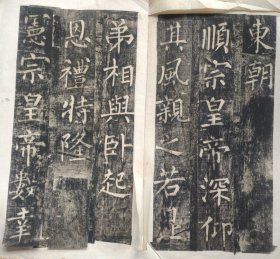 東朝
順宗皇帝深仰
其風親之若昆
弟相與卧起
恩禮特隆
憲宗皇帝數幸